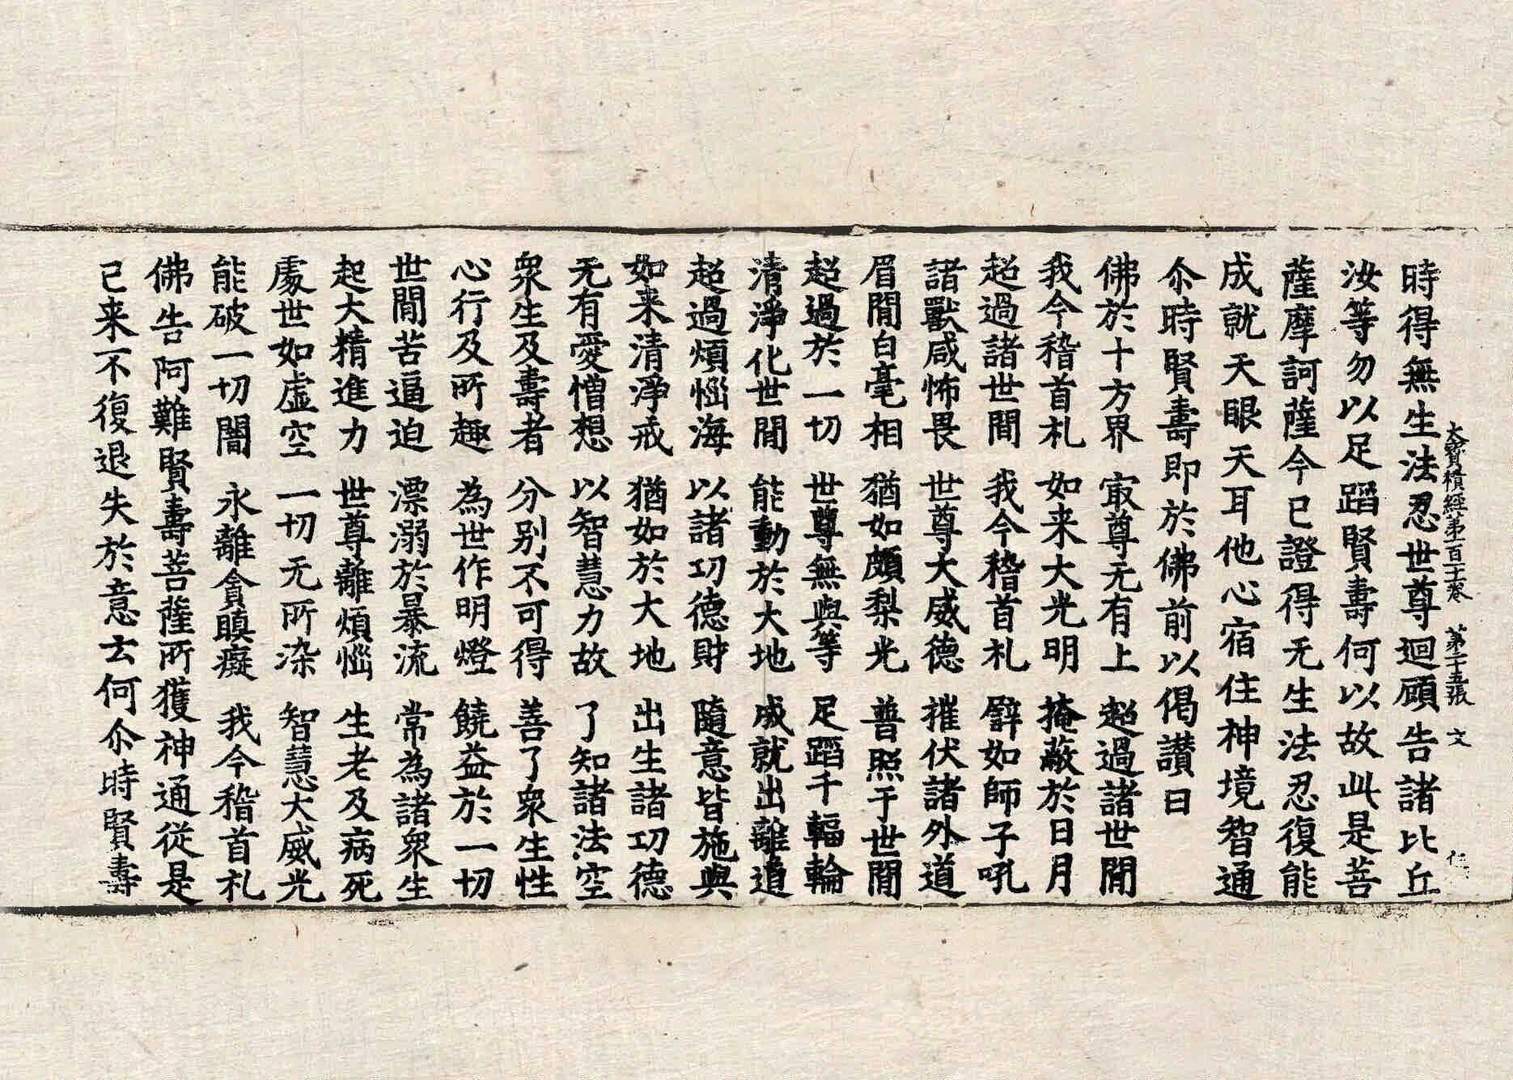 大寶積經第一百十卷　第二十五張　文　仁
時得無生法忍世尊迴顧告諸比丘
汝等勿以足蹈賢壽何以故此是菩
薩摩訶薩今已證得无生法忍復能
成就天眼天耳他心宿住神境智通
尒時賢壽即於佛前以偈讃曰
佛於十方界　㝡尊无有上　超過諸世間
我今稽首礼　如来大光明　掩蔽於日月
超過諸世間　我今稽首礼　譬如師子吼
諸獸咸怖畏　世尊大威德　摧伏諸外道
眉間白毫相　猶如頗梨光　普照于世間
超過於一切　世尊無與等　足蹈千輻輪
清淨化世間　能動於大地　成就出離道
超過煩惱海　以諸功德財　隨意皆施與
如来清淨戒　猶如於大地　出生諸功德
无有愛憎想　以智慧力故　了知諸法空
衆生及壽者　分别不可得　善了衆生性
心行及所趣　為世作明燈　饒益於一切
世間苦逼迫　漂溺於暴流　常為諸衆生
起大精進力　世尊離煩惱　生老及病死
處世如虛空　一切无所染　智慧大威光
能破一切闇　永離貪瞋癡　我今稽首礼
佛告阿難賢壽菩薩所獲神通從是
已来不復退失於意云何尒時賢壽